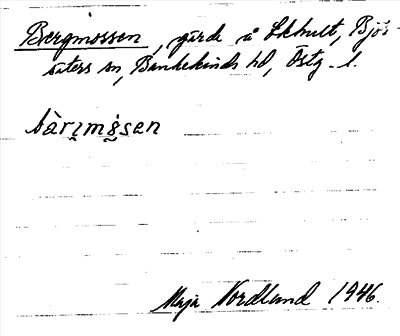 Bergmossen, gärde å Ekhult, Björ-
säters sn, Bankekinds hd, Östg. l.
bàrımåsen
Maja Nordlund 1946.